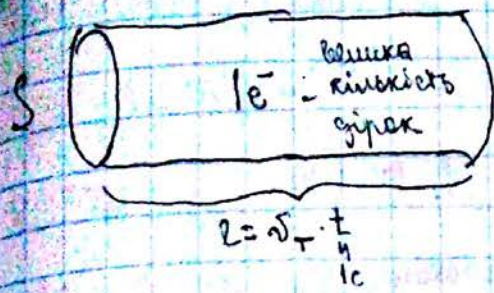 S
1e⁻ - велика
кількість
дірок
l = v_T · t
"
1c